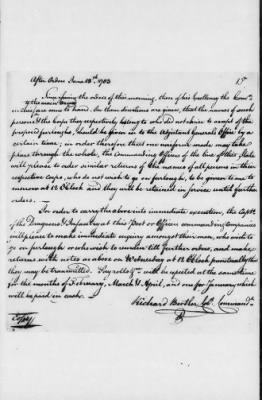 After Orders June 13th 1783
15
Since fixing the orders of this morning, those of his Excellency the Com
in chief are come to hand. As then directions are given, that the names of such
persons & the Corps they respectively belong to who do not chuse to accept of the
proposed furloughs, should be given in to the Adjutant Generals Office by a
certain time; in order therefore that one uniform mode may take
place through the whole, the Commanding Officers of the line of this State
will please to order similar returns of the names of all persons in their
respective corps, who do not wish to go on furlough, to be given to me to
morrow at 12 oClock and they will be retained in Service untill further
orders.
In order to carry the above into immediate execution, the Capts.
of the Dragoons & Infantry at this Post or Officers commanding Companies
will please to make immediate enquiry amongst their men, who wish to
go on furlough or who wish to remain till further orders, and make
returns with notes as above on Wednesday at 12 oClock punctually that
they may be transmitted. Pay rolls will be expected at the same time
for the months of February, March & April, and one for January which
will be paid in cash.
Richard Butler Col. Command.
Copy